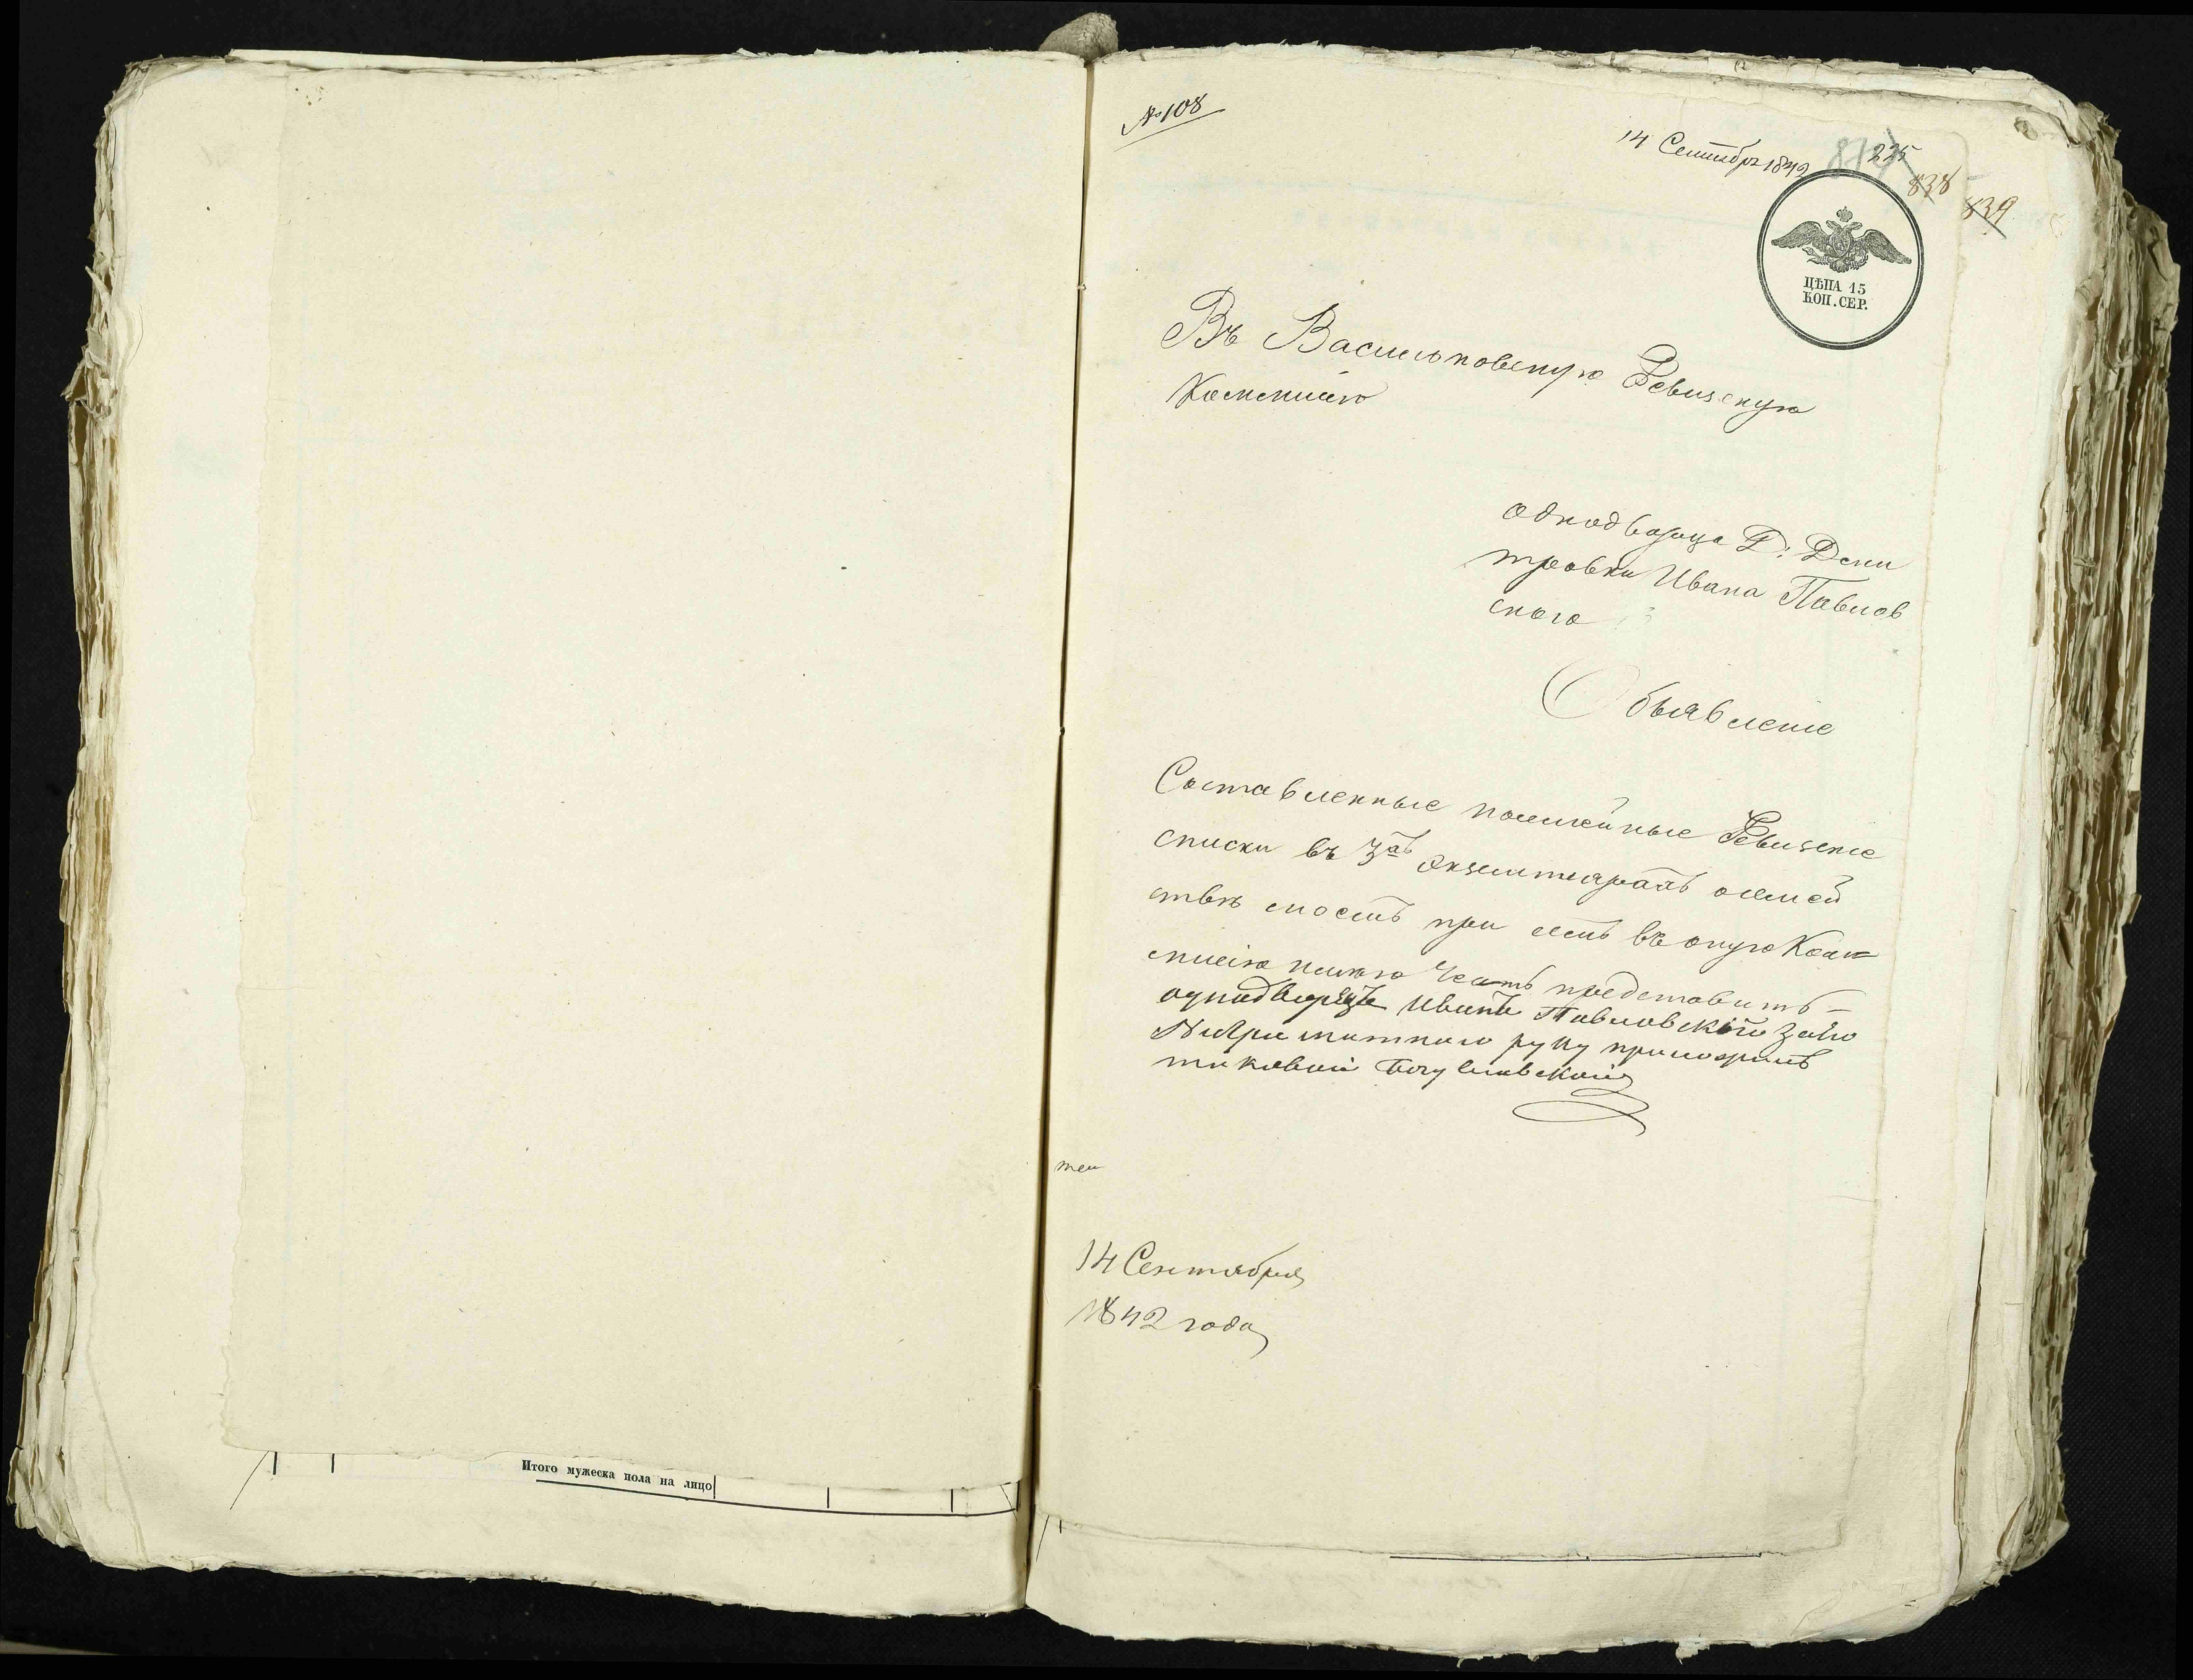 №108
14 Сентября 1842
225
838
839
ЦѢНА 15
КОП. СЕР.
Въ Васильковскую Ревизскую
Коммисію
однодворца Д: Дми
тровки Ивана Павлов
ского
Объявленіе
Составленные посемейные Ревизскіе
списки въ 3хъ экземплярахъ о семей
ствѣ моемъ при семъ въ оную Ком
мисію имѣю честь представить –
однодворецъ Иванъ Павловскій за его
неграмотного руку приложилъ
таковой Богуславской
тел
14 Сентября
1842 года
Итого мужеска пола на лицо